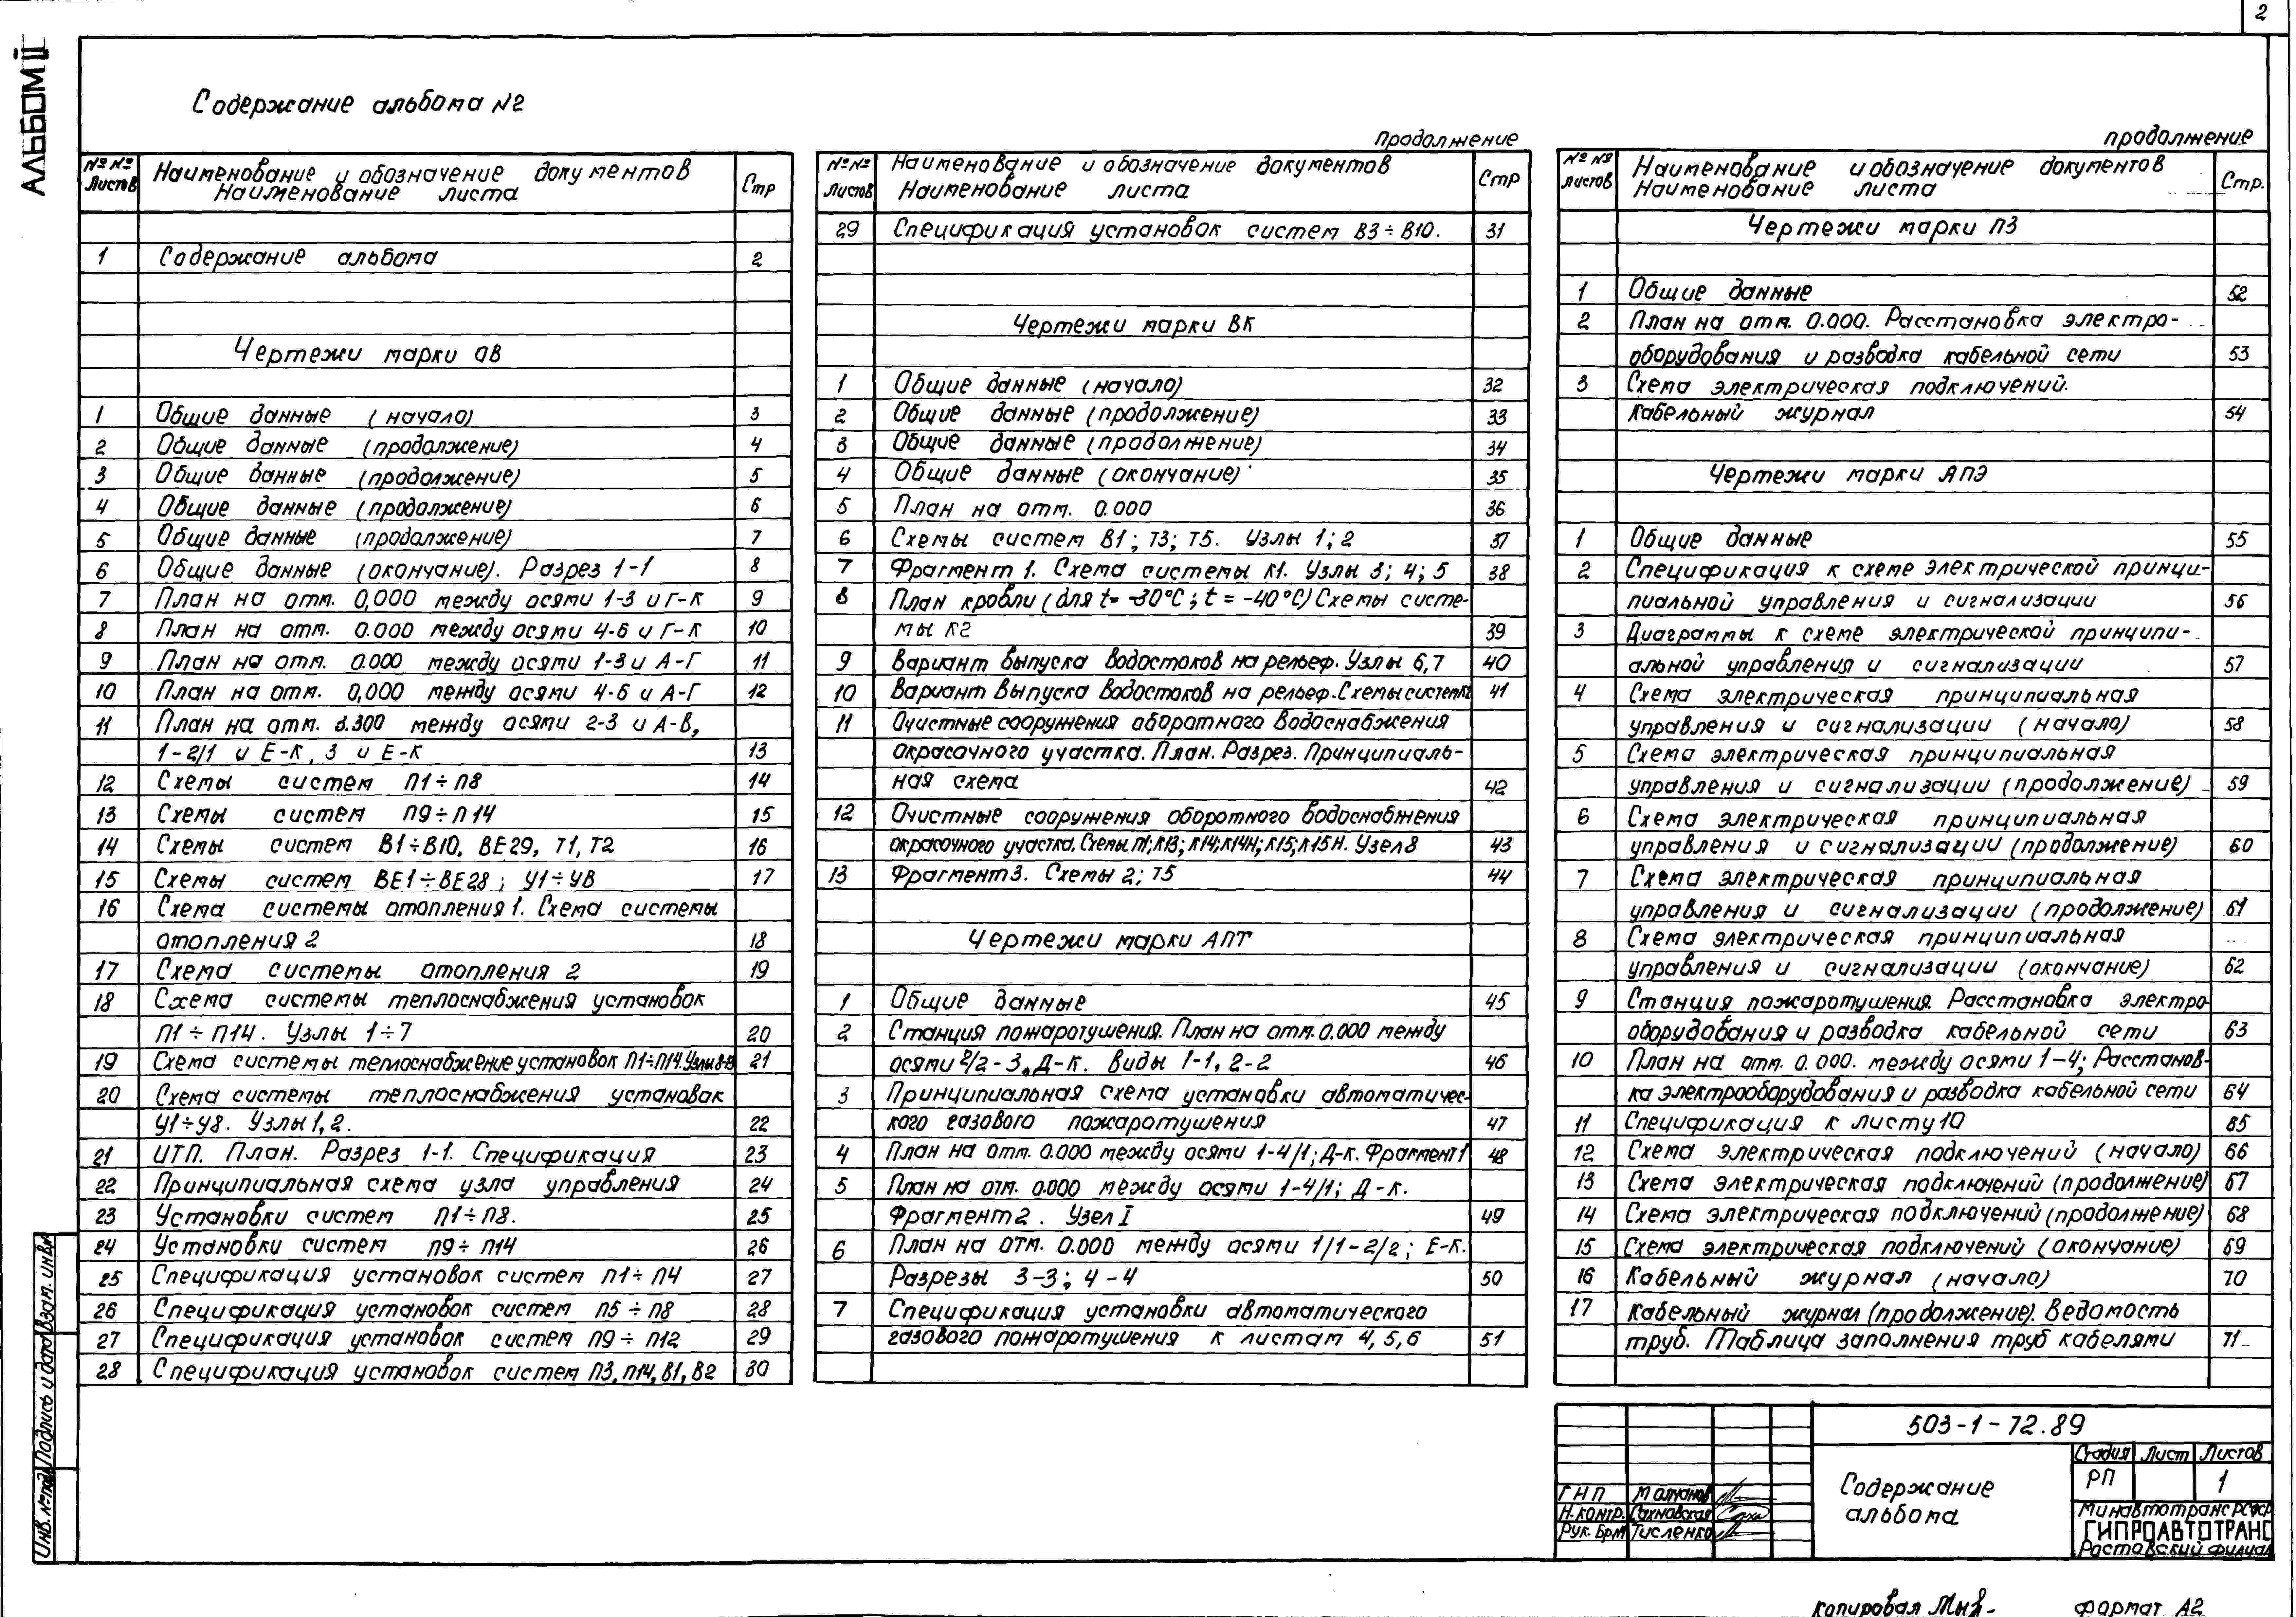 2
Альбом II
Содержание альбома №2
№№ листов
Наименование и обозначение документов
Наименование листа
Стр
1 Содержание альбома 2
Чертежи марки ОВ
1 Общие данные (начало) 3
2 Общие данные (продолжение) 4
3 Общие данные (продолжение) 5
4 Общие данные (продолжение) 6
5 Общие данные (продолжение) 7
6 Общие данные (окончание). Разрез 1-1 8
7 План на отм. 0,000 между осями 1-3 и Г-К 9
8 План на отм. 0.000 между осями 4-6 и Г-К 10
9 План на отм. 0.000 между осями 1-3 и А-Г 11
10 План на отм. 0,000 между осями 4-6 и А-Г 12
11 План на отм. 3.300 между осями 2-3 и А-В,
1-2/1 и Е-К, 3 и Е-К 13
12 Схемы систем П1÷П8 14
13 Схемы систем П9÷П14 15
14 Схемы систем В1÷В10, ВЕ29, Т1, Т2 16
15 Схемы систем ВЕ1÷ВЕ28; У1÷У8 17
16 Схема системы отопления 1. Схема системы
отопления 2 18
17 Схема системы отопления 2 19
18 Схема системы теплоснабжения установок
П1÷П14. Узлы 1÷7 20
19 Схема системы теплоснабжение установок П1÷П14. Узлы 21
20 Схема системы теплоснабжения установок
У1÷У8. Узлы 1, 2. 22
21 ИТП. План. Разрез 1-1. Спецификация 23
22 Принципиальная схема узла управления 24
23 Установки систем П1÷П8. 25
24 Установки систем П9÷П14 26
25 Спецификация установок систем П1÷П4 27
26 Спецификация установок систем П5÷П8 28
27 Спецификация установок систем П9÷П12 29
28 Спецификация установок систем П3, П14, В1, В2 30
Продолжение
№№ листов
Наименование и обозначение документов
Наименование листа
Стр
29 Спецификация установок систем В3÷В10. 31
Чертежи марки ВК
1 Общие данные (начало) 32
2 Общие данные (продолжение) 33
3 Общие данные (продолжение) 34
4 Общие данные (окончание) 35
5 План на отм. 0.000 36
6 Схемы систем В1; Т3; Т5. Узлы 1; 2 37
7 Фрагмент 1. Схема системы К1. Узлы 3; 4; 5 38
8 План кровли (для t= -30°С; t = -40°С) Схемы систе-
мы К2 39
9 Вариант выпуска водостоков на рельеф. Узлы 6,7 40
10 Вариант выпуска водостоков на рельеф. Схемы 41
11 Очистные сооружения оборотного водоснабжения
окрасочного участка. План. Разрез. Принципиаль-
ная схема 42
12 Очистные сооружения оборотного водоснабжения
окрасочного участка. Схемы П1; К13; К14; К14Н; К15; К15Н. Узел 8 43
13 Фрагмент 3. Схемы 2; Т5 44
Чертежи марки АПТ
1 Общие данные 45
2 Станция пожаротушения. План на отм. 0.000 между
осями 2/2-3, Д-К. Виды 1-1, 2-2 46
3 Принципиальная схема установки автоматичес-
кого газового пожаротушения 47
4 План на отм. 0.000 между осями 1-4/1; Д-К. Фрагмент 1 48
5 План на отм. 0.000 между осями 1-4/1; Д-К.
Фрагмент 2. Узел I 49
6 План на отм. 0.000 между осями 1/1-2/2; Е-К.
Разрезы 3-3; 4-4 50
7 Спецификация установки автоматического
газового пожаротушения к листам 4, 5, 6 51
продолжение
№№ листов
Наименование и обозначение документов
Наименование листа
Стр.
Чертежи марки ПЗ
1 Общие данные 52
2 План на отм. 0.000. Расстановка электро-
оборудования и разводка кабельной сети 53
3 Схема электрическая подключений.
Кабельный журнал 54
Чертежи марки АПЭ
1 Общие данные 55
2 Спецификация к схеме электрической принци-
пиальной управления и сигнализации 56
3 Диаграммы к схеме электрической принципи-
альной управления и сигнализации 57
4 Схема электрическая принципиальная
управления и сигнализации (начало) 58
5 Схема электрическая принципиальная
управления и сигнализации (продолжение) 59
6 Схема электрическая принципиальная
управления и сигнализации (продолжение) 60
7 Схема электрическая принципиальная
управления и сигнализации (продолжение) 61
8 Схема электрическая принципиальная
управления и сигнализации (окончание) 62
9 Станция пожаротушения. Расстановка электро
оборудования и разводка кабельной сети 63
10 План на отм. 0.000. между осями 1-4; Расстанов-
ка электрооборудования и разводка кабельной сети 64
11 Спецификация к листу 10 65
12 Схема электрическая подключений (начало) 66
13 Схема электрическая подключений (продолжение) 67
14 Схема электрическая подключений (продолжение) 68
15 Схема электрическая подключений (окончание) 69
16 Кабельный журнал (начало) 70
17 Кабельный журнал (продолжение). Ведомость
труб. Таблица заполнения труб кабелями 71
503-1-72.89
Содержание альбома
Стадия Лист Листов
РП 1
ГИП Молчанов
Н.контр. Сахновская
Рук. брм Тисленко
Минавтотранс РСФСР
ГИПРОАВТОТРАНС
Ростовский филиал
Инв. № подл. Подпись и дата Взам. инв. №
Копировал
Формат А2